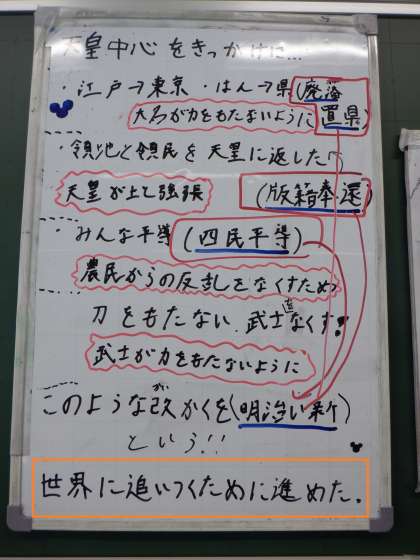 天皇中心をきっかけに…
・江戸→東京 ・はん→県(廃藩
大名が力をもたないように 置県)
・領地と領民を天皇に返した
天皇が上と強張 (版籍奉還)
・みんな平等(四民平等)
農民からの反乱をなくすため
刀をもたない 武士はなくす!
武士が力をもたないように
このような改かくを(明治い新)
が
という!!
世界に追いつくために進めた。